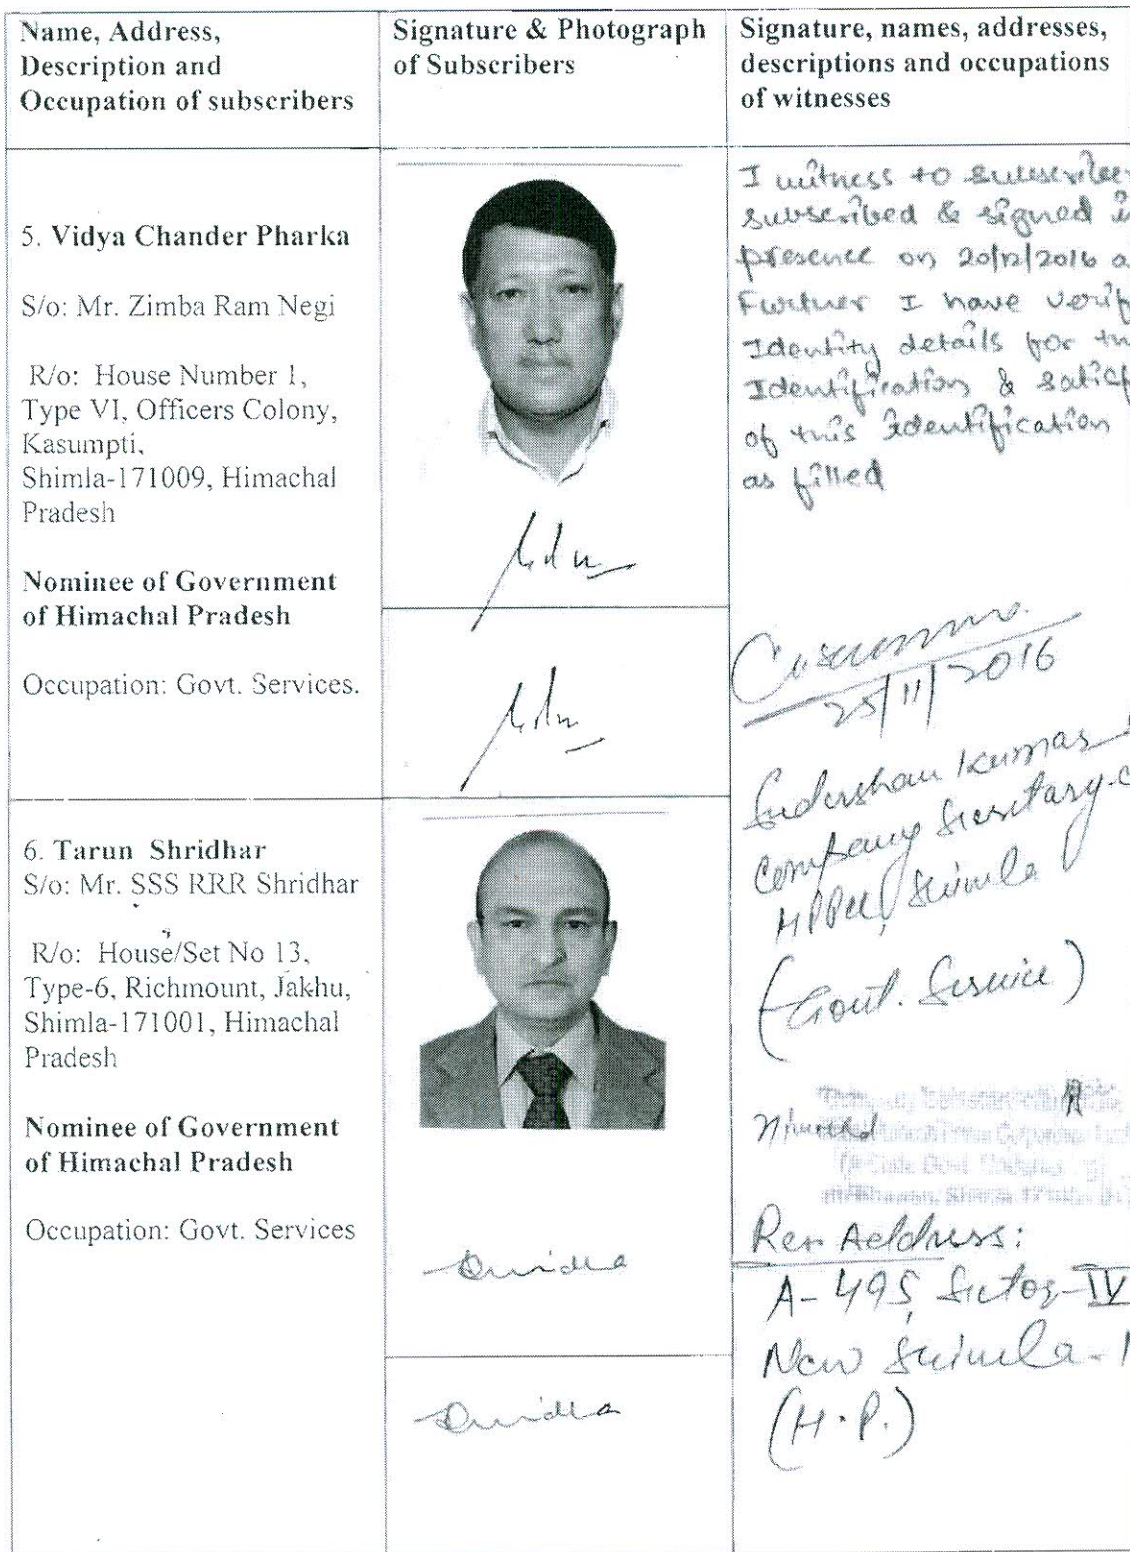 Name, Address,
Description and
Occupation of subscribers
Signature & Photograph
of Subscribers
Signature, names, addresses,
descriptions and occupations
of witnesses
5. Vidya Chander Pharka
S/o: Mr. Zimba Ram Negi
R/o: House Number 1,
Type VI, Officers Colony,
Kasumpti,
Shimla-171009, Himachal
Pradesh
Nominee of Government
of Himachal Pradesh
Occupation: Govt. Services.
I witness to
subscribed & signed
presence on 20/12/2016
Further I have
Identity details for
Identification &
of this identification
as filled
25/11/2016
Sudershan Kumar
Company Secretary
Shimla
(Govt. Service)
Res Address:
A-495, Sector-IV
New Shimla-
(H.P.)
6. Tarun Shridhar
S/o: Mr. SSS RRR Shridhar
R/o: House/Set No 13,
Type-6, Richmount, Jakhu,
Shimla-171001, Himachal
Pradesh
Nominee of Government
of Himachal Pradesh
Occupation: Govt. Services